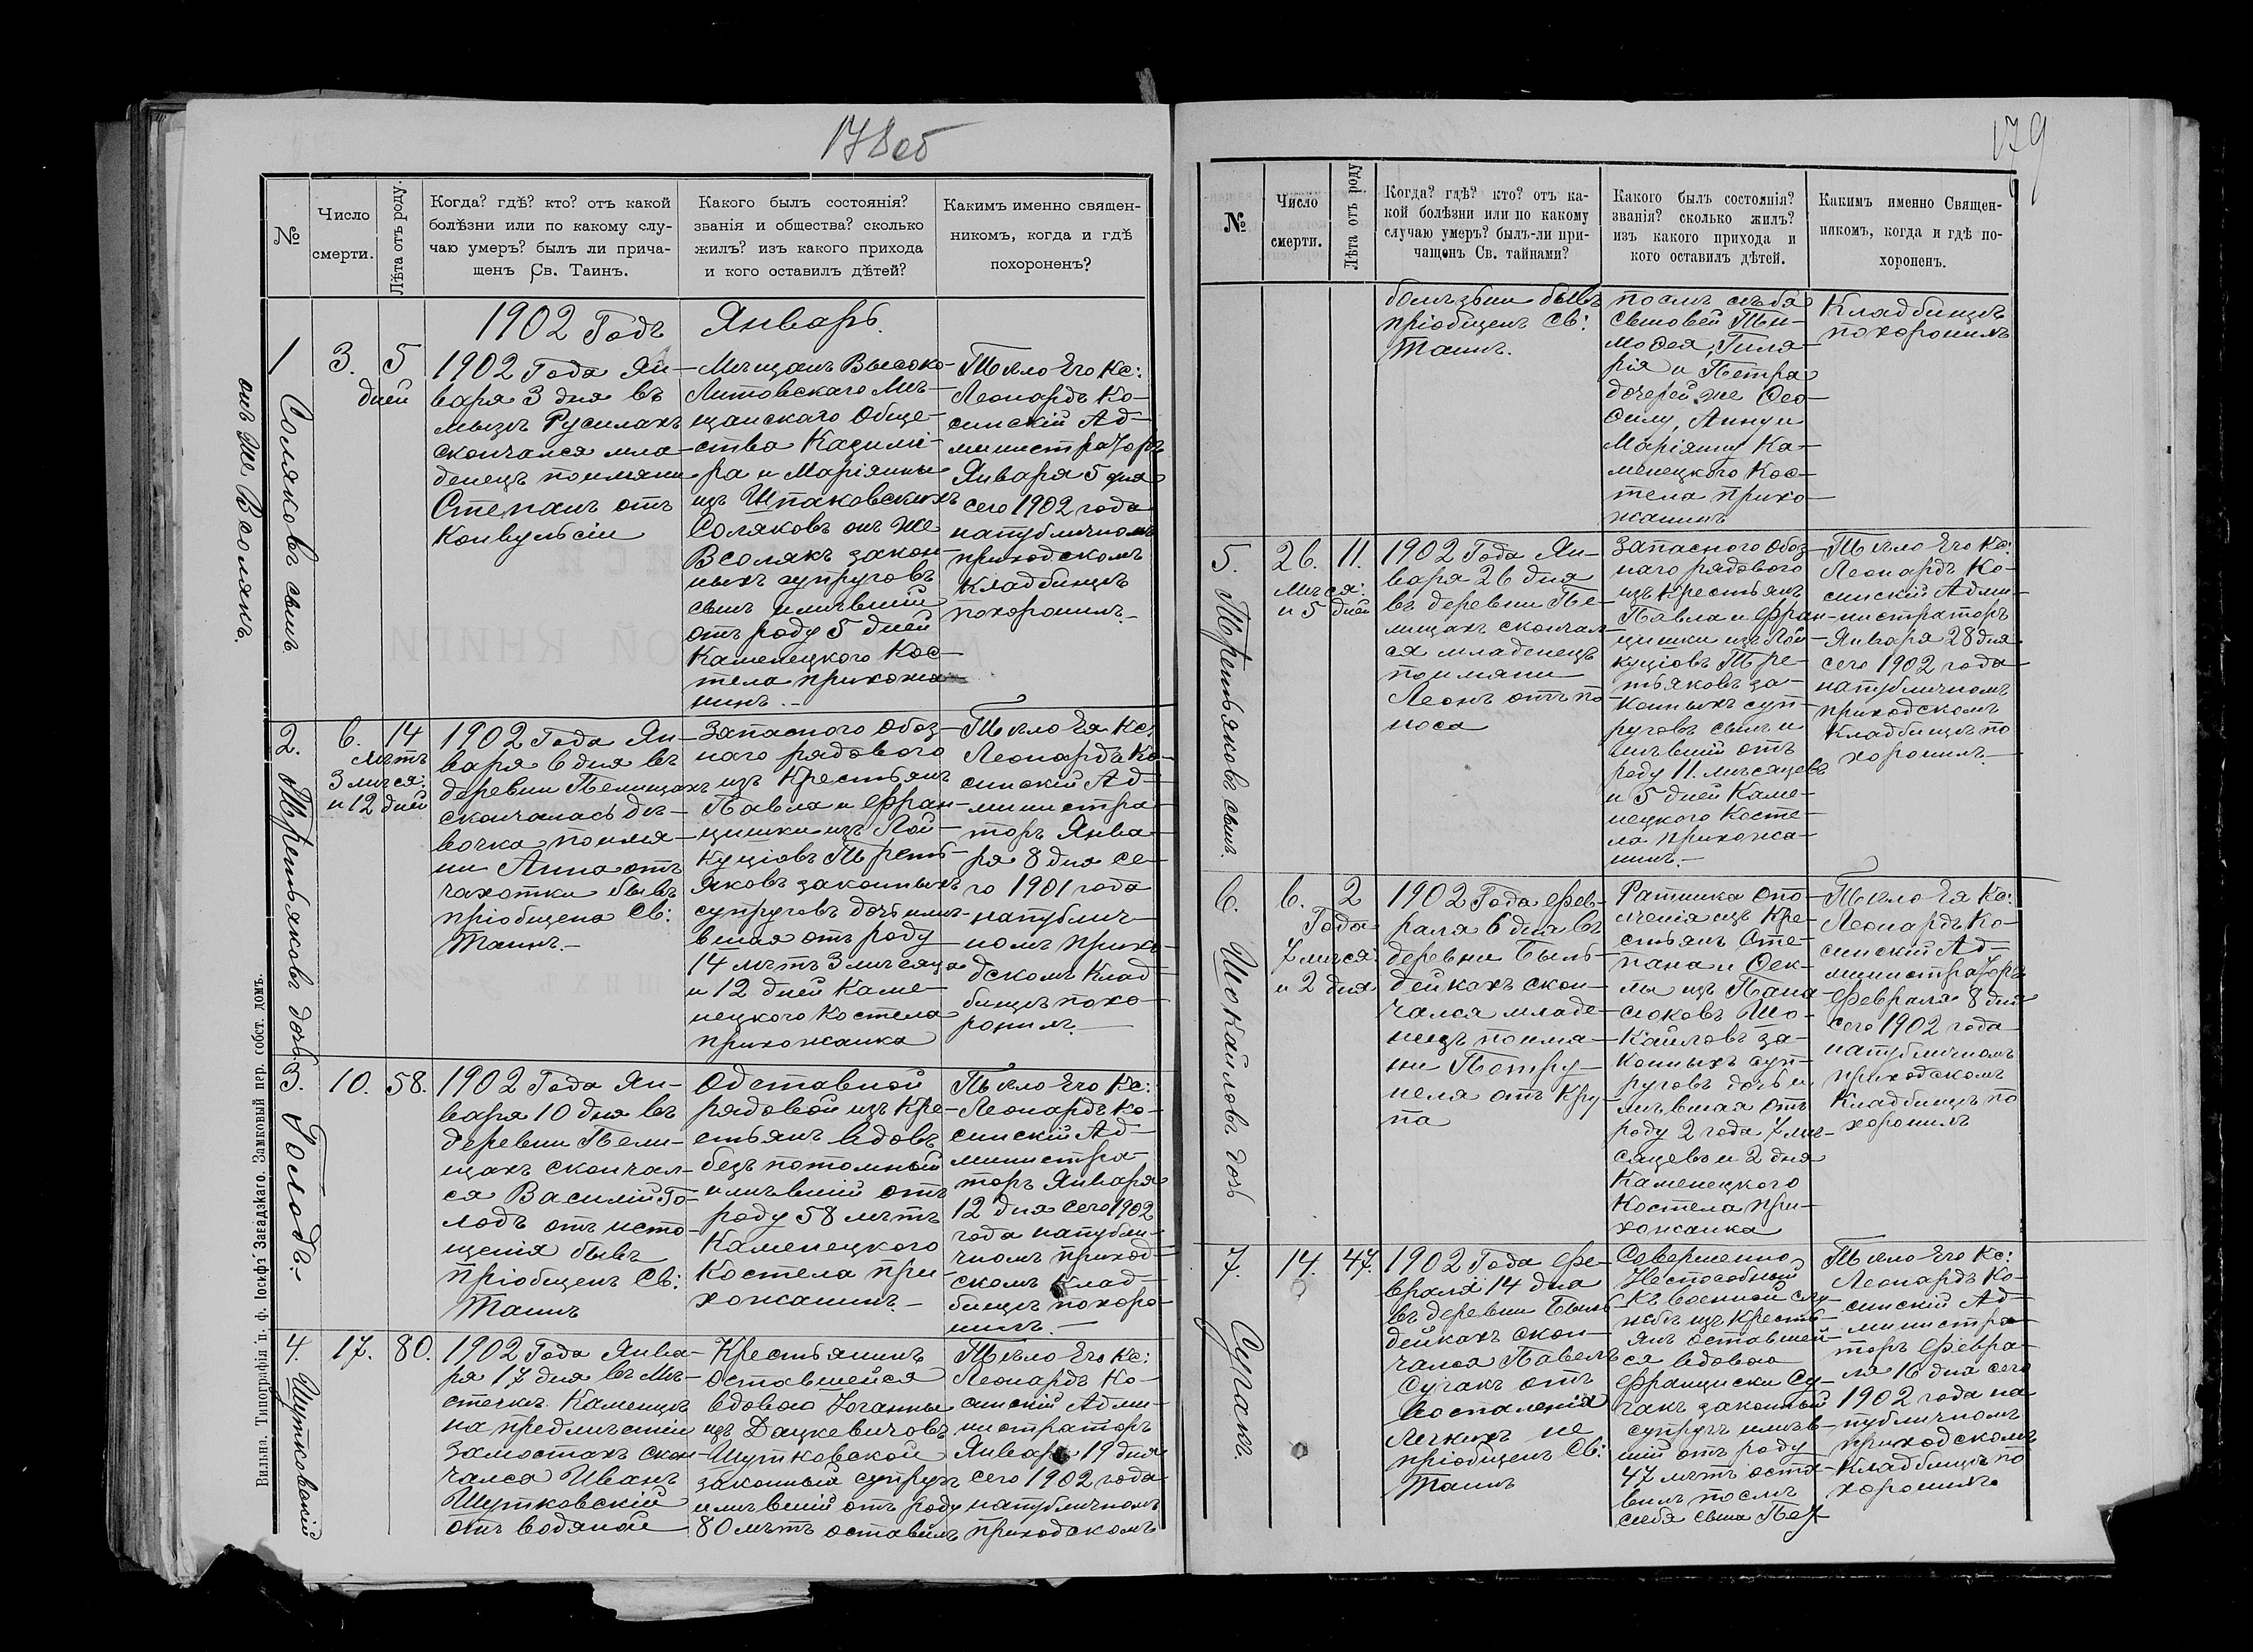 178об
№
Число
смерти.
Лѣта отъ роду.
Когда? гдѣ? кто? отъ какой
болѣзни или по какому слу-
чаю умеръ? былъ ли прича-
щенъ Св. Таинъ.
Какого былъ состоянія?
званія и общества? сколько
жилъ? изъ какого прихода
и кого оставилъ дѣтей?
Какимъ именно священ-
никомъ, когда и гдѣ
похороненъ?
1902 Годъ Январь.
1
Соляковъ сынъ
онъ же Всолякъ.
3.
5
дней
1902 Года Ян-
варя 3 дня въ
мызѣ Русилахъ
скончался мла-
денецъ поимяни
Степанъ отъ
Конвульсіи
Мѣщанъ Высоко-
Литовскаго Мѣ-
щанскаго Обще-
ства Казимі-
ра и Маріянны
изъ Шпаковскихъ
Соляковъ онъ же
Всолякъ закон-
ныхъ супруговъ
сынъ имѣвшій
отъ роду 5 дней
Каменецкого Кос-
тела прихожа-
нинъ.-
Тѣло Его Кс:
Леонардъ Ко-
синскій Ад-
министраторъ
Января 5 дня
сего 1902 года
напубличномъ
приходскомъ
Кладбищѣ
похоронилъ.-
2.
Третьяковъ дочь.
6.
14
лѣтъ
3 мѣся:
и 12 дней
1902 Года Ян-
варя 6 дня въ
деревни Пелищахъ
скончалась дѣ-
вочка поимя-
ни Анна отъ
чахотки бывъ
пріобщена Св:
Таинъ.-
Запасного Обоз-
наго рядового
изъ Крестьянъ
Павла и Фран-
цишки изъ Лой-
куціовъ Треть-
яковъ законныхъ
супруговъ дочь имѣ-
вшая отъ роду
14 лѣтъ 3 мѣсяца
и 12 дней Каме-
нецкого Костела
прихожанка
Тѣло Ея Кс:
Леонардъ Ко-
синскій Ад-
министра-
торъ Янва-
ря 8 дня се-
го 1901 года
напублич-
номъ прихо-
дскомъ Клад-
бищѣ похо-
ронилъ.-
3.
Голодъ.-
10.
58.
1902 Года Ян-
варя 10 дня въ
деревни Пели-
щахъ скончал-
ся Василій Го-
лодъ отъ исто-
щенія бывъ
пріобщенъ Св:
Таинъ
Одставной
рядовой изъ Кре-
стьянъ вдовъ
безъ потомный
имѣвшій отъ
роду 58 лѣтъ
Каменецкого
Костела при-
хожанинъ.-
Тѣло Его Кс:
Леонардъ Ко-
синскій Ад-
министра-
торъ Января
12 дня сего 1902
года напубли-
чномъ приход-
скомъ Клад-
бищѣ похоро-
нилъ.-
4.
Шутковскій
17.
80.
1902 Года Янва-
ря 17 дня въ Мѣ-
стечкѣ Каменцѣ
на предмѣстіи
Замостахъ скон-
чался Иванъ
Шутковскій
отъ водяной
Крестьянинъ
оставшейся
вдовою Іоганны
изъ Дацкевичовъ
Шутковской
законный супругъ
имѣвшій отъ роду
80 лѣтъ оставилъ
Тѣло Его Кс:
Леонардъ Ко-
синскій Адми-
нистраторъ
Января 19 дня
сего 1902 года
напубличномъ
приходскомъ
Вильна. Типографія п. ф. Іосифъ Завадзкаго. Замковый пер. собст. домъ.
179
№
Число
смерти.
Лѣта отъ роду
Когда? гдѣ? кто? отъ ка-
кой болѣзни или по какому
случаю умеръ? былъ-ли при-
чащонъ Св. тайнами?
Какого былъ состоянія?
званія? сколько жилъ?
изъ какого прихода и
кого оставилъ дѣтей.
Какимъ именно Священ-
никомъ, когда и гдѣ по-
хороненъ.
болѣзьни бывъ
пріобщенъ Св:
Таинъ.
послѣ съебя
сыновей Ти-
моѳея, Гиля-
рія и Петра
дочерей же Ѳео-
филу, Анну и
Маріянну Ка-
менецкого Кос-
тела прихо-
жанинъ
Кладбищѣ
похоронилъ
5.
Третьяковъ сынъ.
26.
11.
мѣся:
и 5 дней
1902 Года Ян-
варя 26 дня
въ деревни Пе-
лищахъ скончал-
ся младенецъ
поимяни
Леонъ отъ по-
носа
Запасного Обоз-
наго рядового
изъ Крестьянъ
Павла и Фран-
цишки изъ Лой-
куціовъ Тре-
тьяковъ за-
конныхъ суп-
руговъ сынъ и
мѣвшій отъ
роду 11. мѣсяцевъ
и 5 дней Каме-
нецкого Косте-
ла прихожа-
нинъ.-
Тѣло Его Кс:
Леонардъ Ко-
синскій Адми-
нистраторъ
Января 28 дня
сего 1902 года
напубличномъ
приходскомъ
Кладбищѣ по
хоронилъ.-
6.
Шокайловъ дочь
6.
2
Года
7 мѣся:
и 2 дня
1902 Года Фев-
раля 6 дня въ
деревни Быль-
дейкахъ скон-
чался младе-
нецъ поимя-
ни Петру-
неля отъ Кру-
па
Ратника Опо-
лченія изъ Кре-
стьянъ Сте-
пана и Ѳек-
лы изъ Пана-
сюковъ Шо-
кайловъ за-
конныхъ суп-
руговъ дочь и
мѣвшая отъ
роду 2 года 7 мѣ-
сяцевъ и 2 дня
Каменецкого
Костела при-
хожанка
Тѣло Ея Кс:
Леонардъ Ко-
синскій Ад-
министраторъ
Февраля 8 дня
сего 1902 года
напубличномъ
приходскомъ
Кладбищѣ по
хоронилъ
7.
Сугакъ.
14.
47.
1902 Года Фе-
враля 14 дня
въ деревни Быль-
дейкахъ скон-
чался Павелъ
Сугакъ отъ
Воспаленія
Легкихъ не
пріобщенъ Св:
Таинъ
Совершенно
Неспособный
къ военной слу-
жбѣ изъ Кресть-
янъ оставшей-
ся вдовою
Францишки Су-
гакъ законный
супругъ имѣв-
шій отъ роду
47 лѣтъ оста-
вилъ послѣ
себя сына Пет-
Тѣло Его Кс:
Леонардъ Ко-
синскій Ад-
министра-
торъ Февра-
ля 16 дня сего
1902 года на
публичномъ
приходскомъ
Кладбищѣ по
хоронилъ